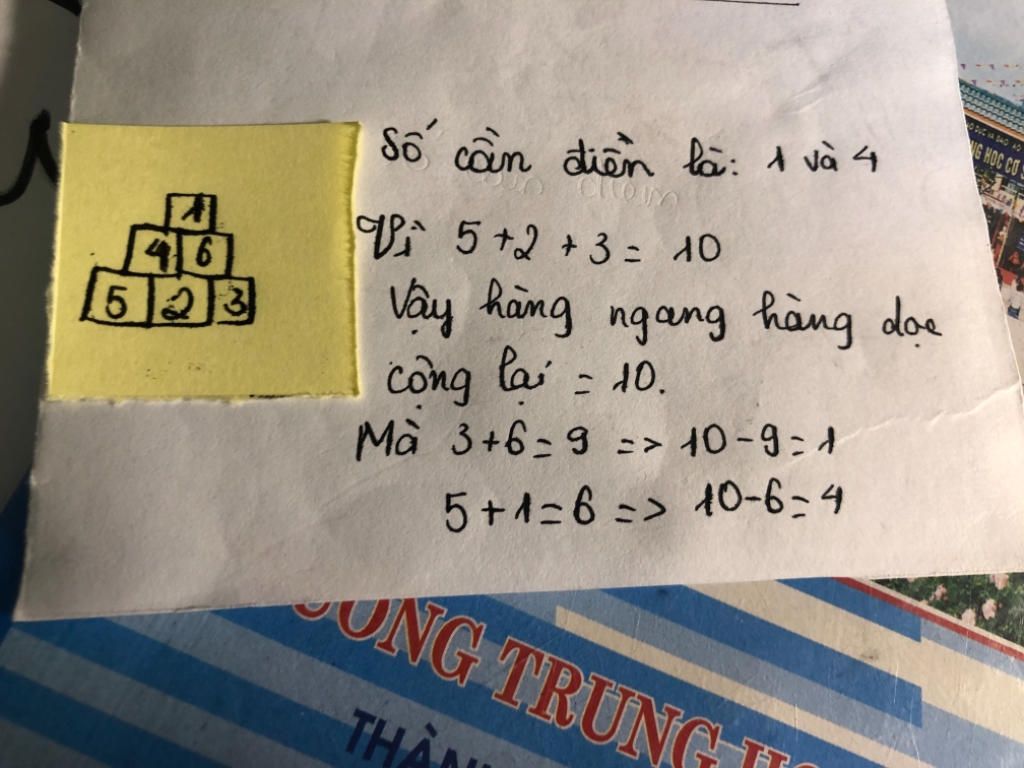 1
4 6
5 2 3
Số cần điền là: 1 và 4
Vì 5 + 2 + 3 = 10
Vậy hàng ngang hàng dọc
cộng lại = 10.
Mà 3 + 6 = 9 => 10 - 9 = 1
5 + 1 = 6 => 10 - 6 = 4
ỌC CƠ S
ƯỜNG TRUNG H
THÀN